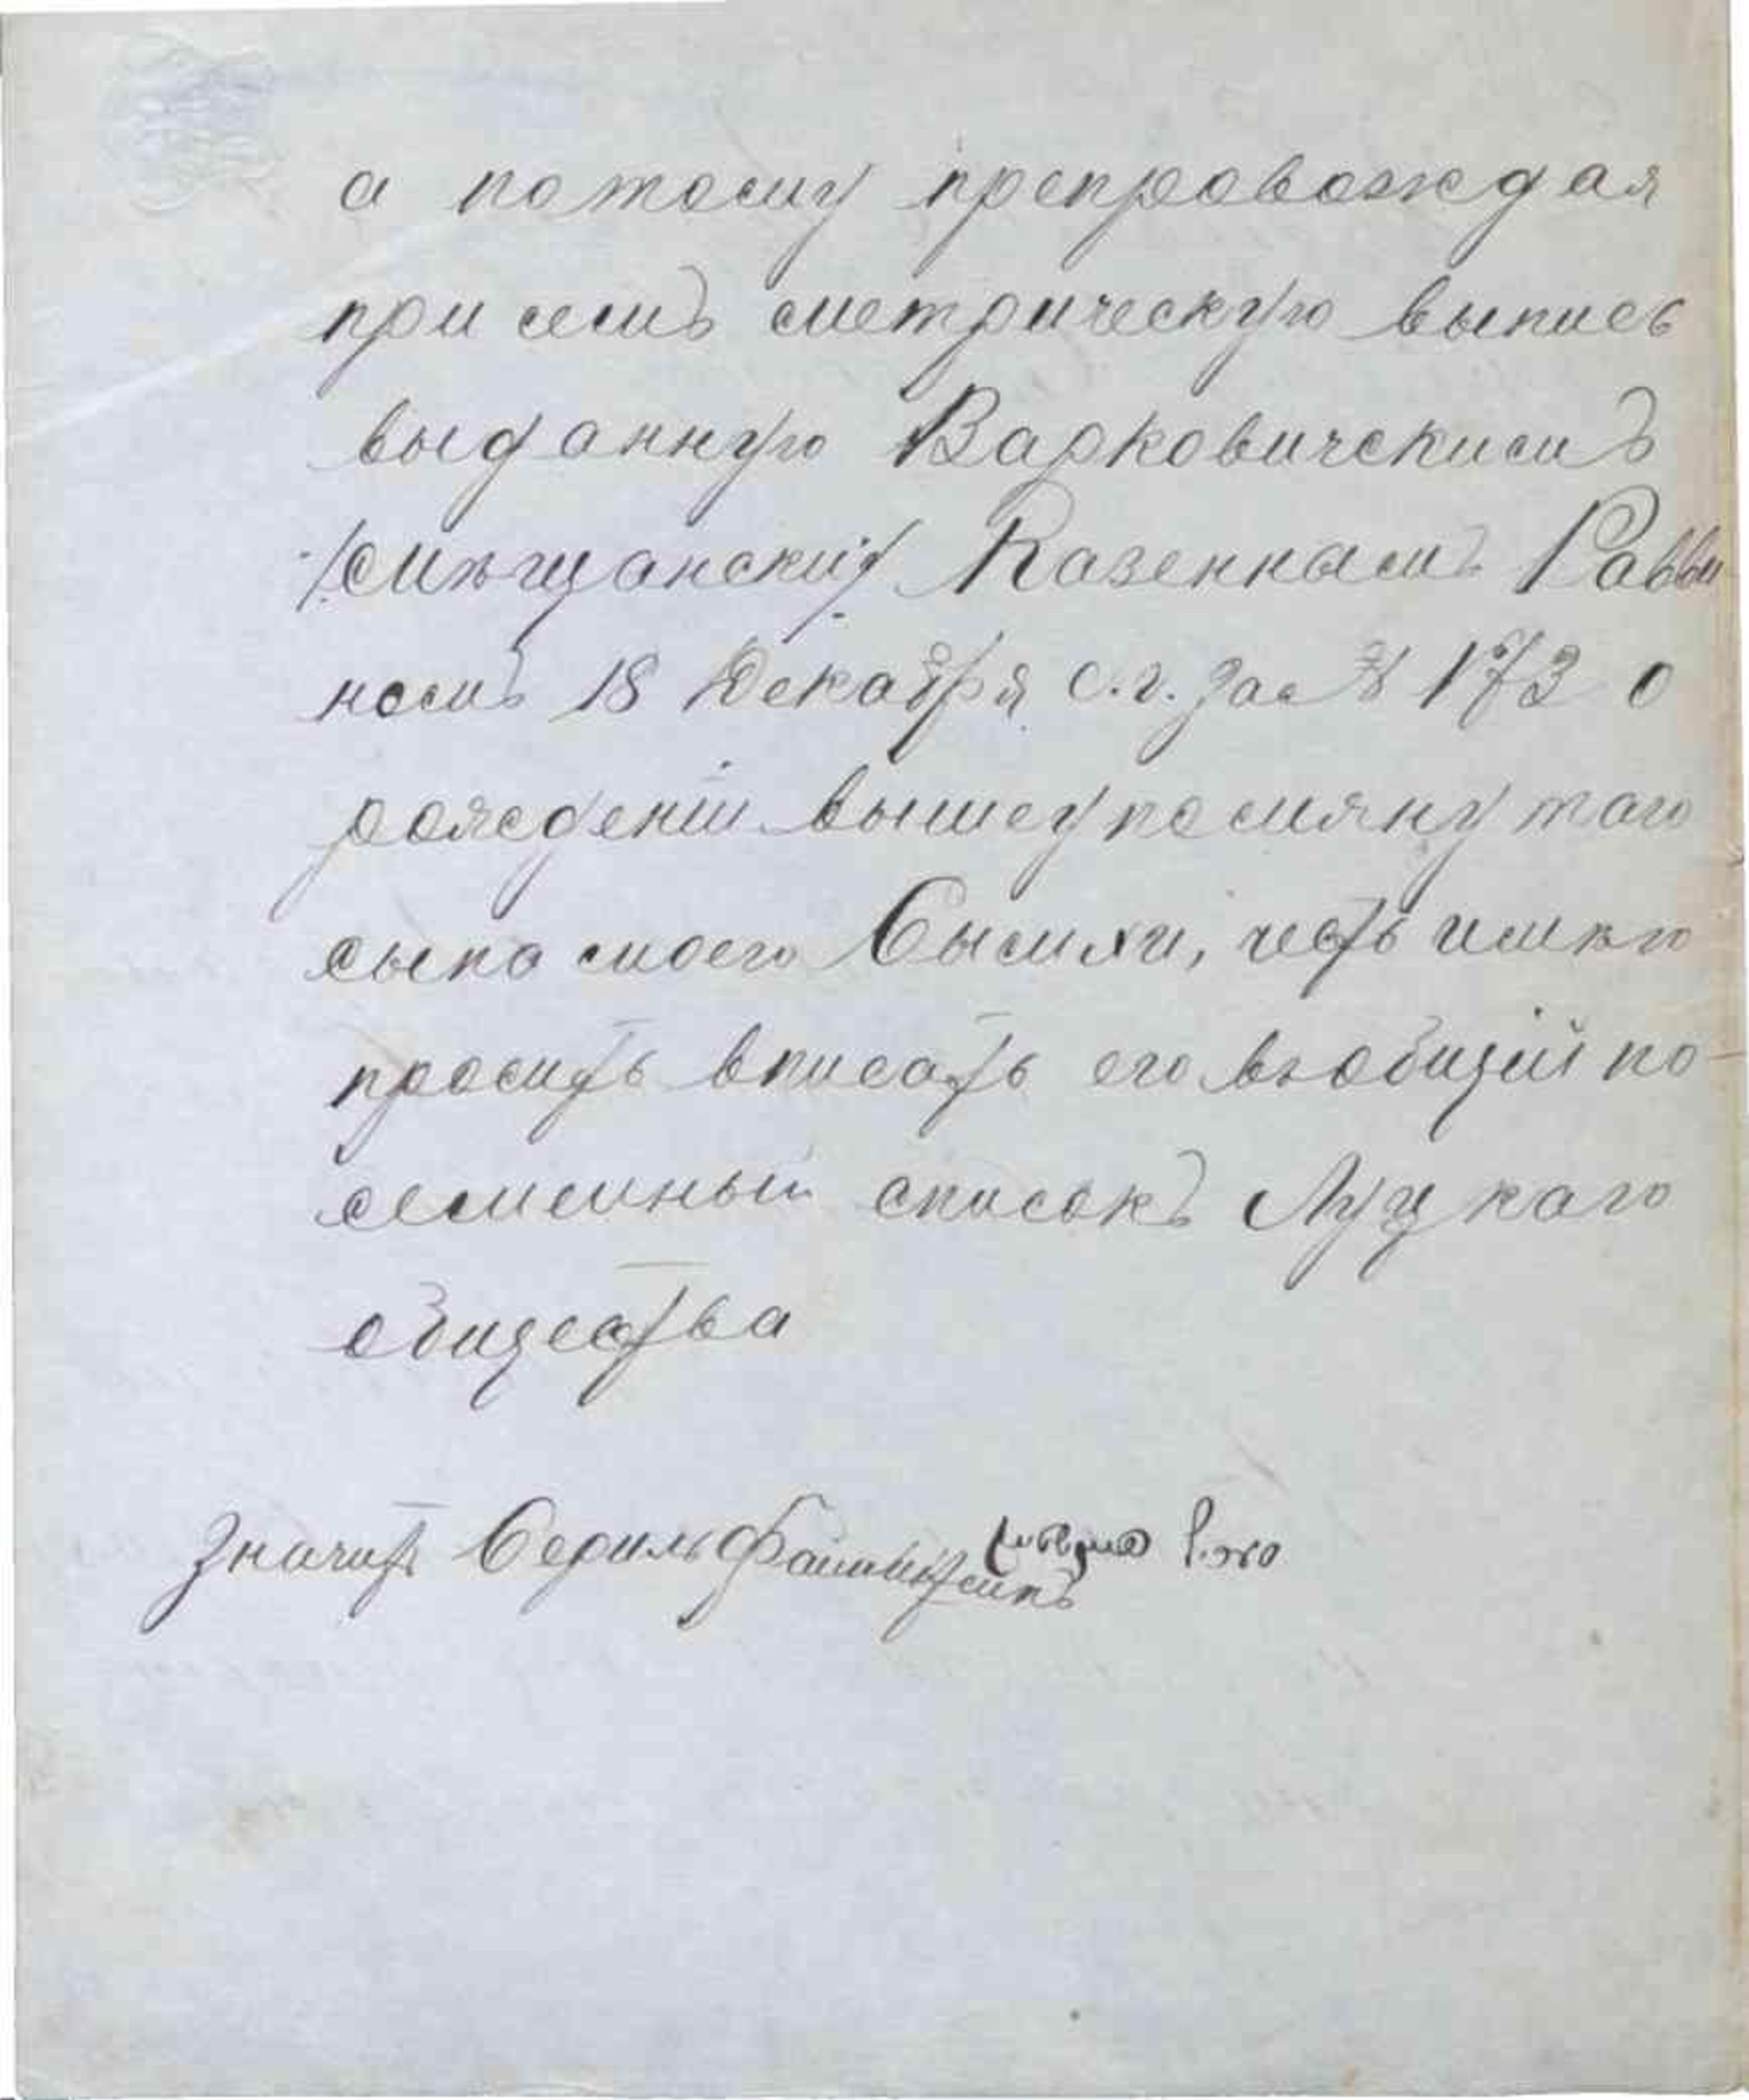 а потому препровождая
при семъ метрическую выпись
выданную Варковичскимъ
/мѣщанскій/ Казеннымъ Равви
номъ 18 Декабря с.г. за № 173 о
рожденіи вышеупомянутаго
сына моего Сысихи, честь имѣю
просить вписать его въ общій по-
семейный списокъ Луцкаго
общества
Значитъ Серуль